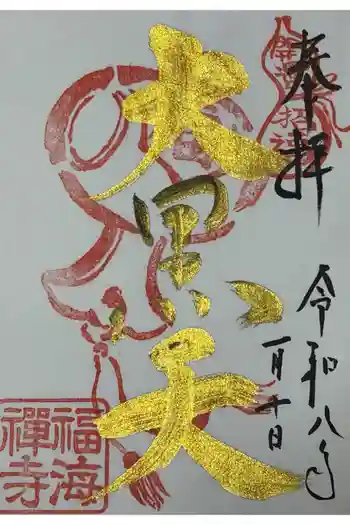 奉拝
大黒天
令和八年
一月十日
開運招福
福海禅寺